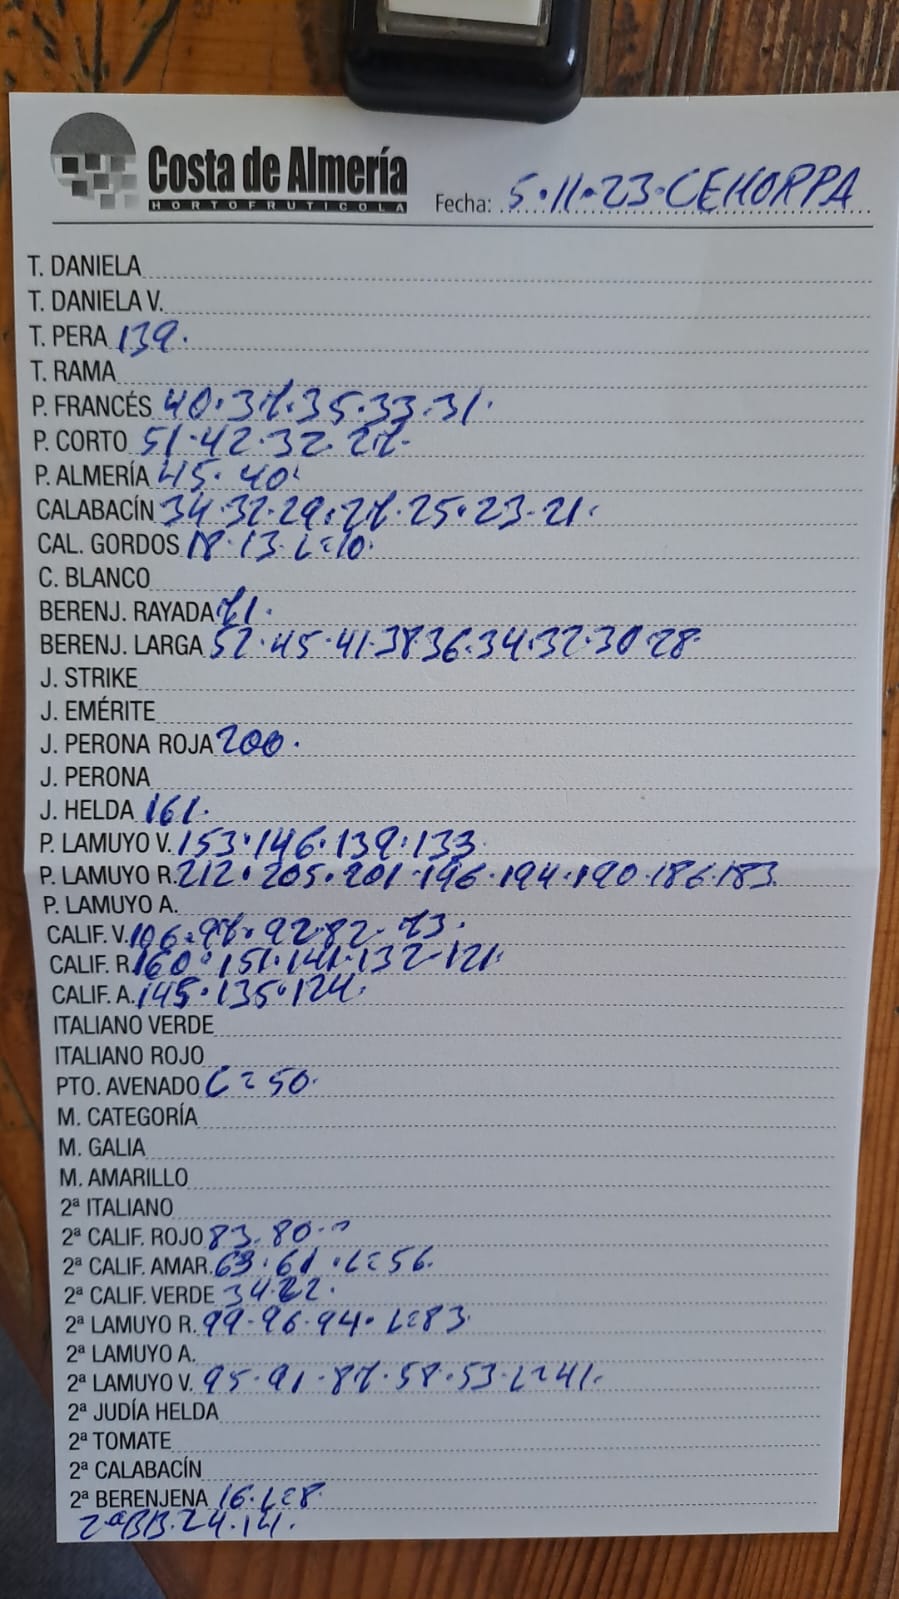 Costa de Almería
HORTOFRUTICOLA
Fecha: 5.11.23.CEHORPA
T. DANIELA
T. DANIELA V.
T. PERA 139.
T. RAMA
P. FRANCÉS 40.37.35.33.31.
P. CORTO 51.42.32.27.
P. ALMERÍA 45.40.
CALABACÍN 34.32.29.27.25.23.21.
CAL. GORDOS 18.13.L=10.
C. BLANCO
BERENJ. RAYADA 71.
BERENJ. LARGA 52.45.41.38.36.34.32.30.28.
J. STRIKE
J. EMÉRITE
J. PERONA ROJA 200.
J. PERONA
J. HELDA 161.
P. LAMUYO V. 153.146.139.133.
P. LAMUYO R. 212.205.201.196.194.190.186.183.
P. LAMUYO A.
CALIF. V. 106.97.92.82.73.
CALIF. R. 160.151.141.132.121.
CALIF. A. 145.135.124.
ITALIANO VERDE
ITALIANO ROJO
PTO. AVENADO L=50.
M. CATEGORÍA
M. GALIA
M. AMARILLO
2ª ITALIANO
2ª CALIF. ROJO 83.80.
2ª CALIF. AMAR. 63.61.L=56.
2ª CALIF. VERDE 34.22.
2ª LAMUYO R. 99.96.94.L=83.
2ª LAMUYO A.
2ª LAMUYO V. 95.91.87.58.53.L=41.
2ª JUDÍA HELDA
2ª TOMATE
2ª CALABACÍN
2ª BERENJENA 16.L=8.
2ªBB.24.14.